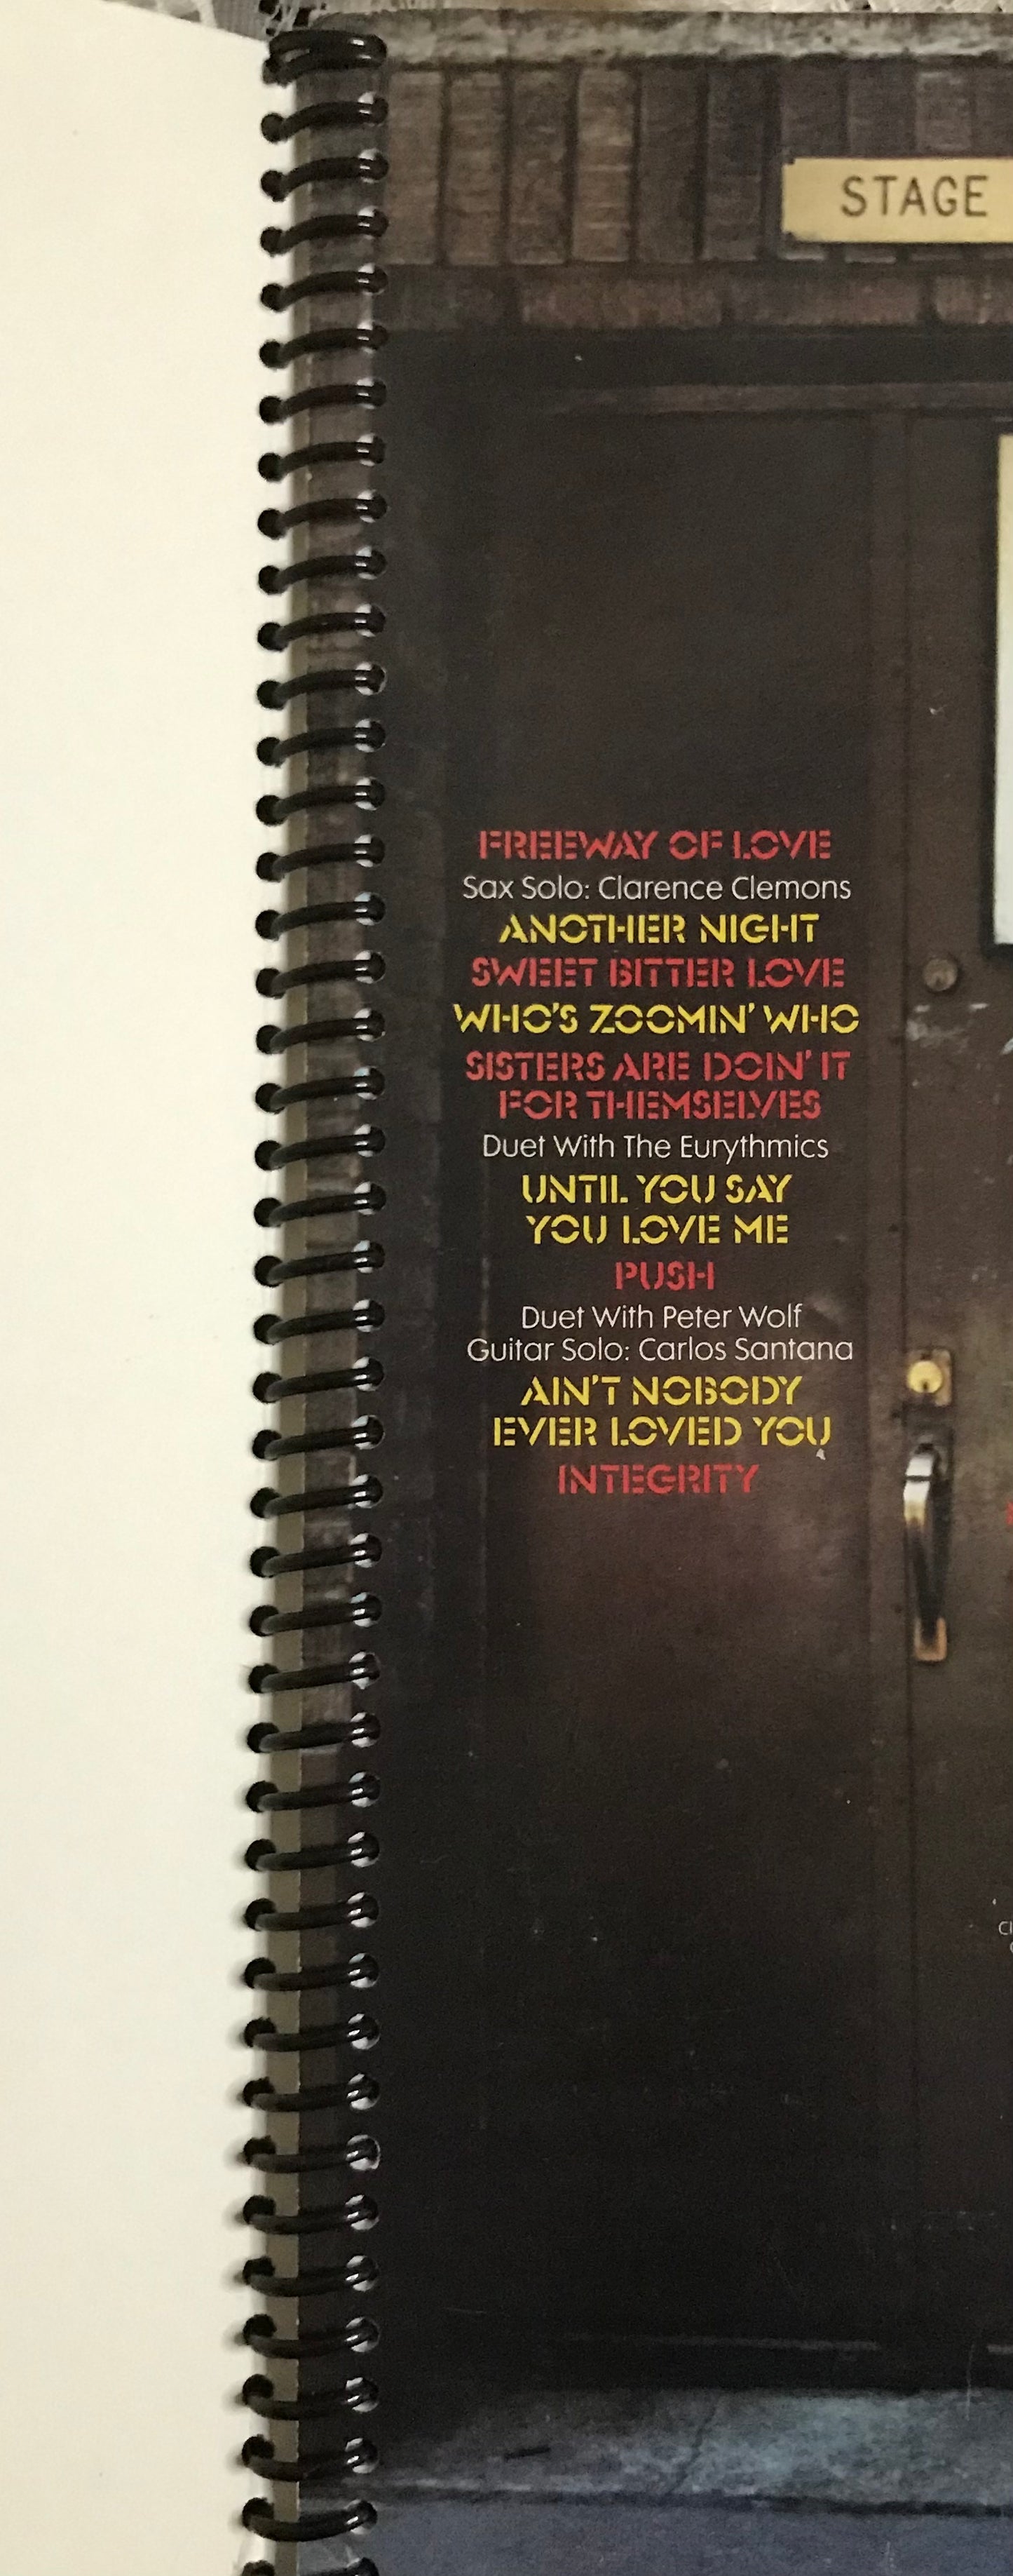 STAGE
FREEWAY OF LOVE
Sax Solo: Clarence Clemons
ANOTHER NIGHT
SWEET BITTER LOVE
WHO'S ZOOMIN' WHO
SISTERS ARE DOIN' IT
FOR THEMSELVES
Duet With The Eurythmics
UNTIL YOU SAY
YOU LOVE ME
PUSH
Duet With Peter Wolf
Guitar Solo: Carlos Santana
AIN'T NOBODY
EVER LOVED YOU
INTEGRITY